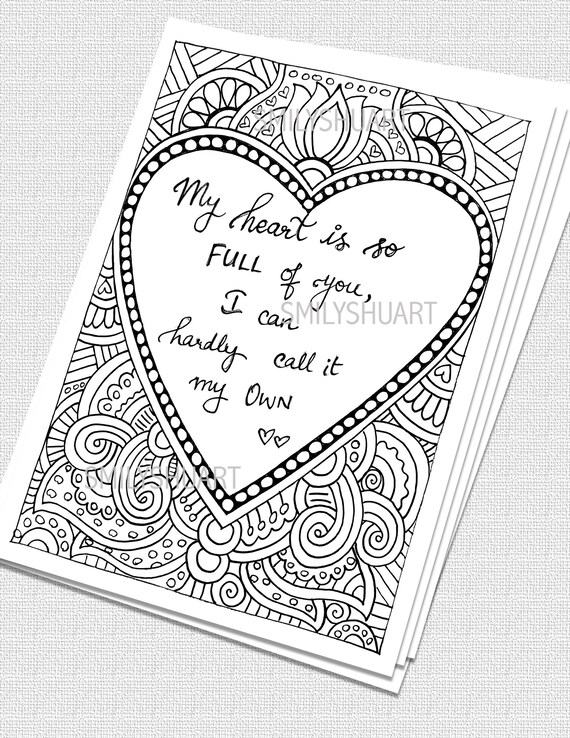 SMILYSHUART
My heart is so
FULL of you,
I can
SMILYSHUART
hardly call it
my OWN
SMILYSHUART